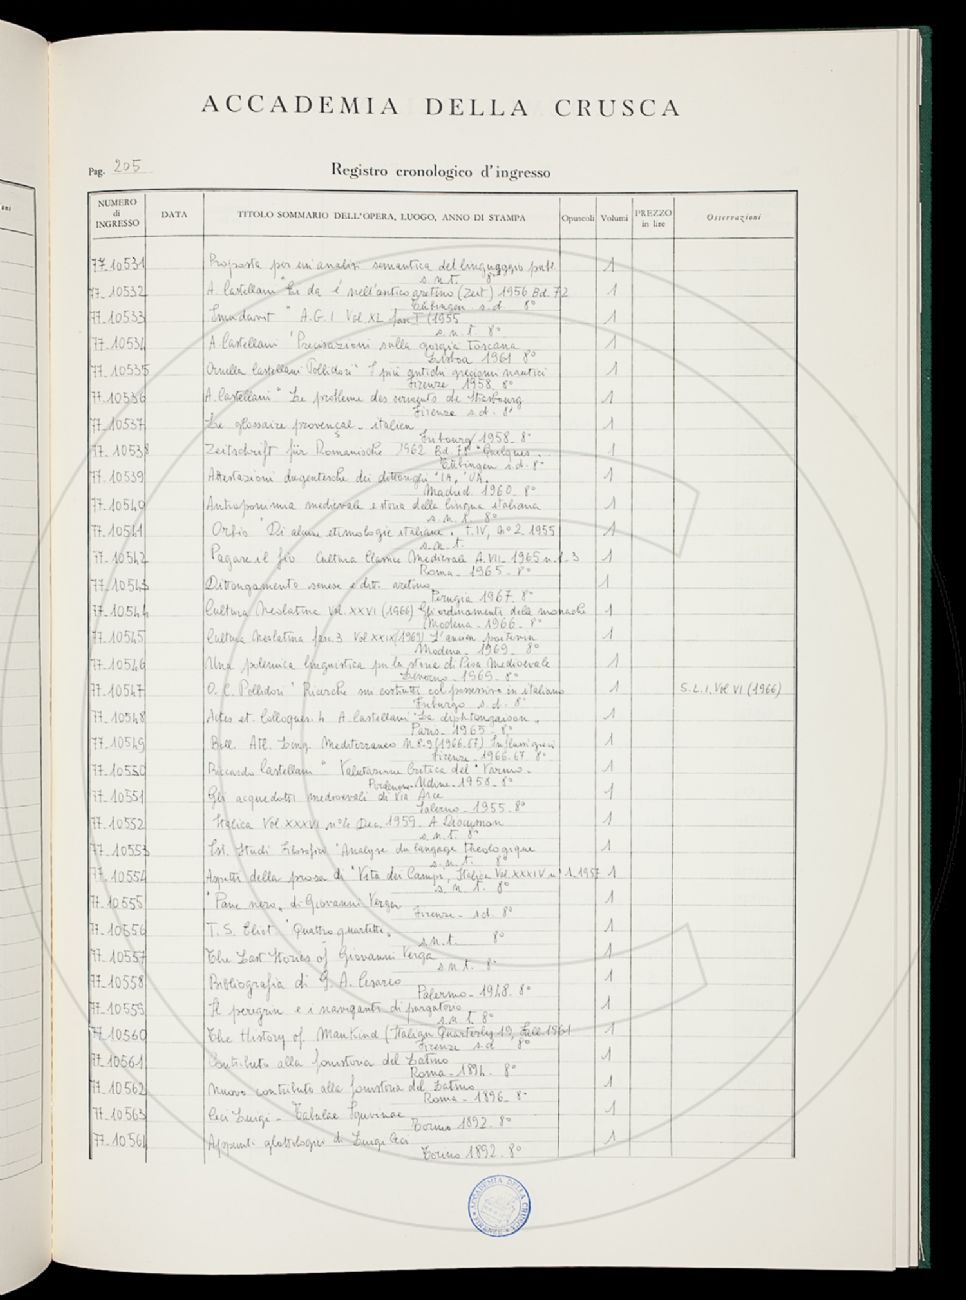 ACCADEMIA DELLA CRUSCA
Pag. 205
Registro cronologico d'ingresso
NUMERO di INGRESSO DATA TITOLO SOMMARIO DELL'OPERA, LUOGO, ANNO DI STAMPA Opuscoli Volumi PREZZO in lire Osservazioni
77-10531 Proposta per un'analisi semantica del linguaggio 1
s.n.t. 8°
77-10532 A. Castellani "Le da é nell'antico aretino (Zeit) 1956 Bd. 72 1
Tübingen s.d. 8°
77-10533 " A.G.I Vol XL fasc I (1955 1
s.n.t. 8°
77-10534 A Castellani "Precisazioni sulla gorgia toscana 1
Lisboa 1961 8°
77-10535 Ornella Castellani Pollidori "I più antichi nautici 1
Firenze 1958 8°
77-10536 A. Castellani " Le problème des serments de Strasbourg 1
Firenze s.d. 8°
77-10537 Le glossaire provençal - italien 1
Friburg 1958 - 8°
77-10538 Zeitschrift für Romanische 1962 Bd. 78 "Quelques. 1
Tübingen s.d. 8°
77-10539 Attestazioni dugentesche dei dittonghi "IA, "UA. 1
Madrid. 1960. 8°
77-10540 Antroponimia medievale e storia della lingua italiana 1
s.n.t. 8°
77-10541 Orbis "Di alcune etimologie italiane. t. IV, n° 2. 1955 1
s.n.t.
77-10542 Pagare il fio Cultura Classica Medievale A.VII - 1965 n. 1-3 1
Roma - 1965 - 8°
77-10543 Dittongamento senese e ditt. aretino 1
Perugia 1967. 8°
77-10544 Cultura Neolatina Vol. XXVI (1966) Gli ordinamenti delle monache 1
Modena - 1966 - 8°
77-10545 Cultura Neolatina fasc. 3 Vol XXIX (1969) L'ancien poitevin 1
Modena - 1969 - 8°
77-10546 Una polemica linguistica per la storia di Pisa Medioevale 1
Livorno - 1969. 8°
77-10547 O.C. Pollidori "Ricerche sui costrutti col possessivo in italiano 1 S.L.I. Vol VI (1966)
Friburgo s.d. 8°
77-10548 Actes et Colloques. 4 A. Castellani "La diphtongaison. 1
Paris - 1965 - 8°
77-10549 Boll. Atl. Ling. Mediterraneo N. 8-9 (1966-67) Influssi greci 1
Firenze - 1966-67 8°
77-10550 Riccardo Castellani " Valutazione Critica del "Varmo. 1
Pordenone - Udine - 1958. 8°
77-10551 Gli acquedotti medioevali di Via Arce 1
Salerno - 1955 - 8°
77-10552 Italica Vol XXXVI n° 4 Dec. 1959 A 1
s.n.t. 8°
77-10553 Ist. Studi Filosofici "Analyse du langage théologique 1
s.n.t. 8°
77-10554 Aspetti della prosa di "Vita dei Campi, Italica Vol. XXXIV n° 1 - 1957 1
s.n.t. 8°
77-10555 "Pane nero, di Giovanni Verga 1
Firenze - s.d. 8°
77-10556 T.S. Eliot "Quattro quartetti" 1
s.n.t. 8°
77-10557 The Last Stories of Giovanni Verga 1
s.n.t. 8°
77-10558 Bibliografia di G. A. Cesareo 1
Palermo - 1948. 8°
77-10559 Il peregrin e i naviganti di purgatorio 1
s.n.t. 8°
77-10560 The History of Mankind (Italian Quarterly 19, Fall 1961 1
Firenze s.d. 8°
77-10561 Contributo alla fonistoria del Latino 1
Roma - 1894. 8°
77-10562 Nuovo contributo alla fonistoria del Latino 1
Roma - 1896 - 8°
77-10563 Ceci Luigi - Tabulae Iguvinae 1
Torino 1892. 8°
77-10564 Appunti glottologici di Luigi Ceci 1
Torino 1892. 8°
ACCADEMIA DELLA CRUSCA